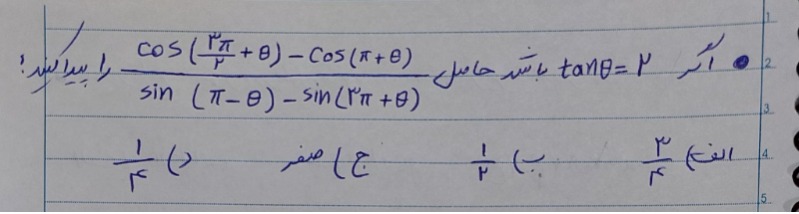 اگر tanθ=۲ باشد حاصل (cos(۳π/۲ + θ) - cos(π+θ)) / (sin(π-θ) - sin(۳π+θ)) را پیدا کنید!
الف) ۳/۴ ب) ۱/۲ ج) صفر د) ۱/۴
1
2
3
4
5